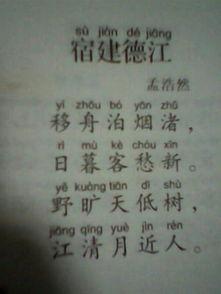 sù jiàn dé jiāng
宿建德江
孟浩然
yí zhōu bó yān zhǔ
移舟泊烟渚，
rì mù kè chóu xīn
日暮客愁新。
yě kuàng tiān dī shù
野旷天低树，
jiāng qīng yuè jìn rén
江清月近人。